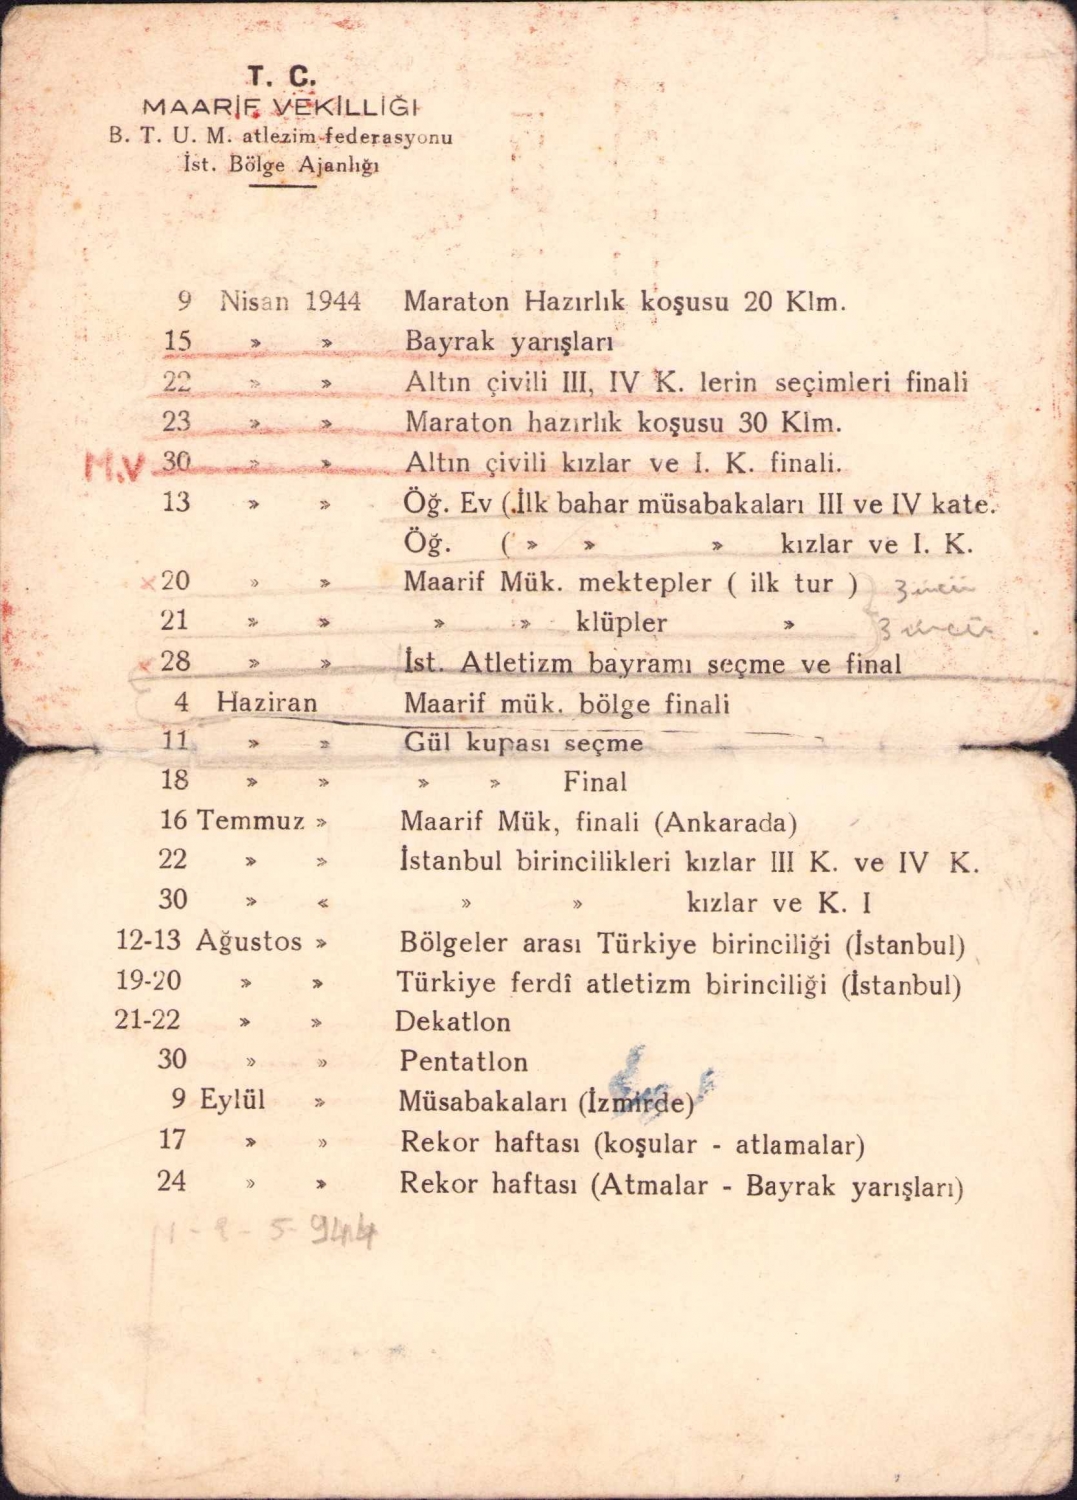 T. C.
MAARİF VEKİLLİĞİ
B. T. U. M. atlezim federasyonu
İst. Bölge Ajanlığı
9 Nisan 1944 Maraton Hazırlık koşusu 20 Klm.
15 » » Bayrak yarışları
22 » » Altın çivili III, IV K. lerin seçimleri finali
23 » » Maraton hazırlık koşusu 30 Klm.
M.V 30 » » Altın çivili kızlar ve I. K. finali.
13 » » Öğ. Ev (İlk bahar müsabakaları III ve IV kate.
Öğ. ( » » » kızlar ve I. K.
x 20 » » Maarif Mük. mektepler ( ilk tur ) 3 üncü
21 » » » » klüpler » 3 üncü
x 28 » » İst. Atletizm bayramı seçme ve final
4 Haziran Maarif mük. bölge finali
11 » » Gül kupası seçme
18 » » » » Final
16 Temmuz » Maarif Mük, finali (Ankarada)
22 » » İstanbul birincilikleri kızlar III K. ve IV K.
30 » « » » kızlar ve K. I
12-13 Ağustos » Bölgeler arası Türkiye birinciliği (İstanbul)
19-20 » » Türkiye ferdî atletizm birinciliği (İstanbul)
21-22 » » Dekatlon
30 » » Pentatlon
9 Eylül » Müsabakaları (İzmirde)
17 » » Rekor haftası (koşular - atlamalar)
24 » » Rekor haftası (Atmalar - Bayrak yarışları)
5- 944